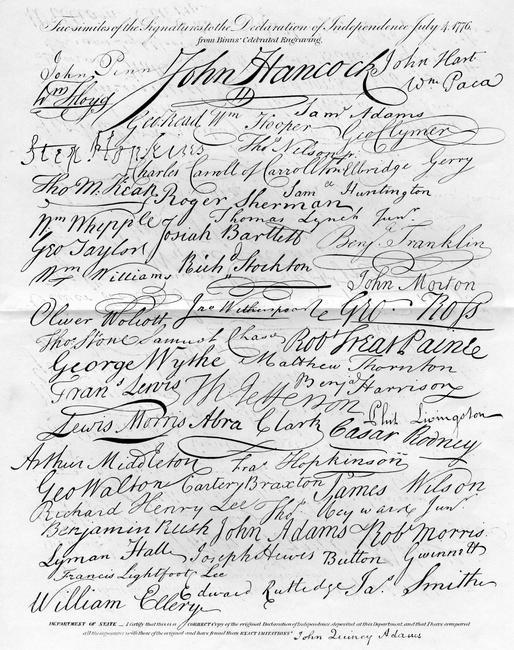 Fac-similes of the Signatures to the Declaration of Independence July 4. 1776.
from Binns' Celebrated Engraving.
John Penn John Hancock John Hart
Wm Floyd Wm Paca
Geo Read Wm Hooper Saml Adams Geo Clymer
Step Hopkins Thos Nelson jr.
Charles Carroll of Carrollton Elbridge Gerry
Tho M. Kean Roger Sherman Saml Huntington
Wm Whipple Thomas Lynch Junr.
Geo Taylor Josiah Bartlett Benj Franklin
Wm Williams Richd Stockton John Morton
Oliver Wolcott Jno Witherspoon Geo. Ross
Thos Stone Samuel Chase Robt Treat Paine
George Wythe Matthew Thornton
Frans Lewis Th Jefferson Benj Harrison
Lewis Morris Abra Clark Phil. Livingston
Cæsar Rodney
Arthur Middleton Fras Hopkinson
Geo Walton Carter Braxton James Wilson
Richard Henry Lee Thos Heyward Junr.
Benjamin Rush John Adams Robt Morris
Lyman Hall Joseph Hewes Button Gwinnett
Francis Lightfoot Lee
William Ellery Edward Rutledge Jas. Smith
DEPARTMENT OF STATE — I certify that this is a CORRECT Copy of the original Declaration of Independence deposited at this Department, and that I have compared
all the signatures with those of the original and have found them EXACT IMITATIONS.
John Quincy Adams